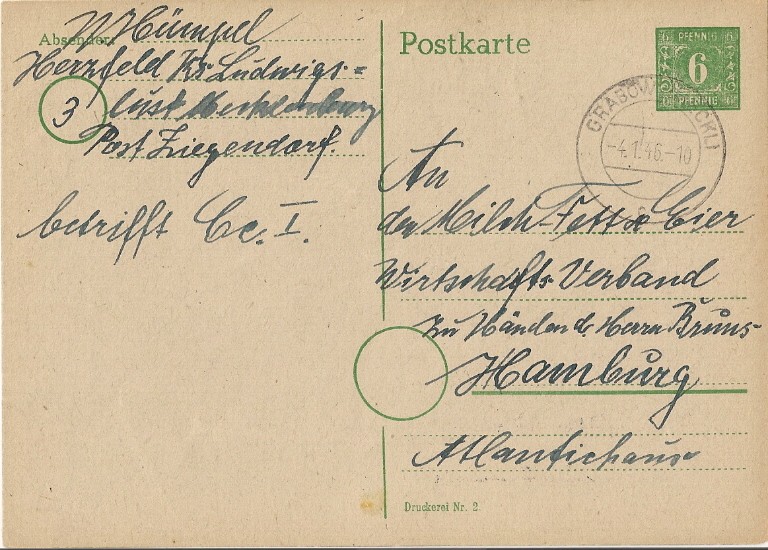 Absender:
W. Hümpel
Herzfeld Kr. Ludwigs-
lust Mecklenburg
3
Post Ziegendorf.
betrifft Cc. I.
Postkarte
6 PFENNIG 6
6
PFENNIG
GRABOW (MECKL)
-4.1.46.-10
c
An
den Milch-Fett & Eier
Wirtschafts Verband
zu Händen d. Herrn Bruns-
Hamburg
Atlantichaus
Druckerei Nr. 2